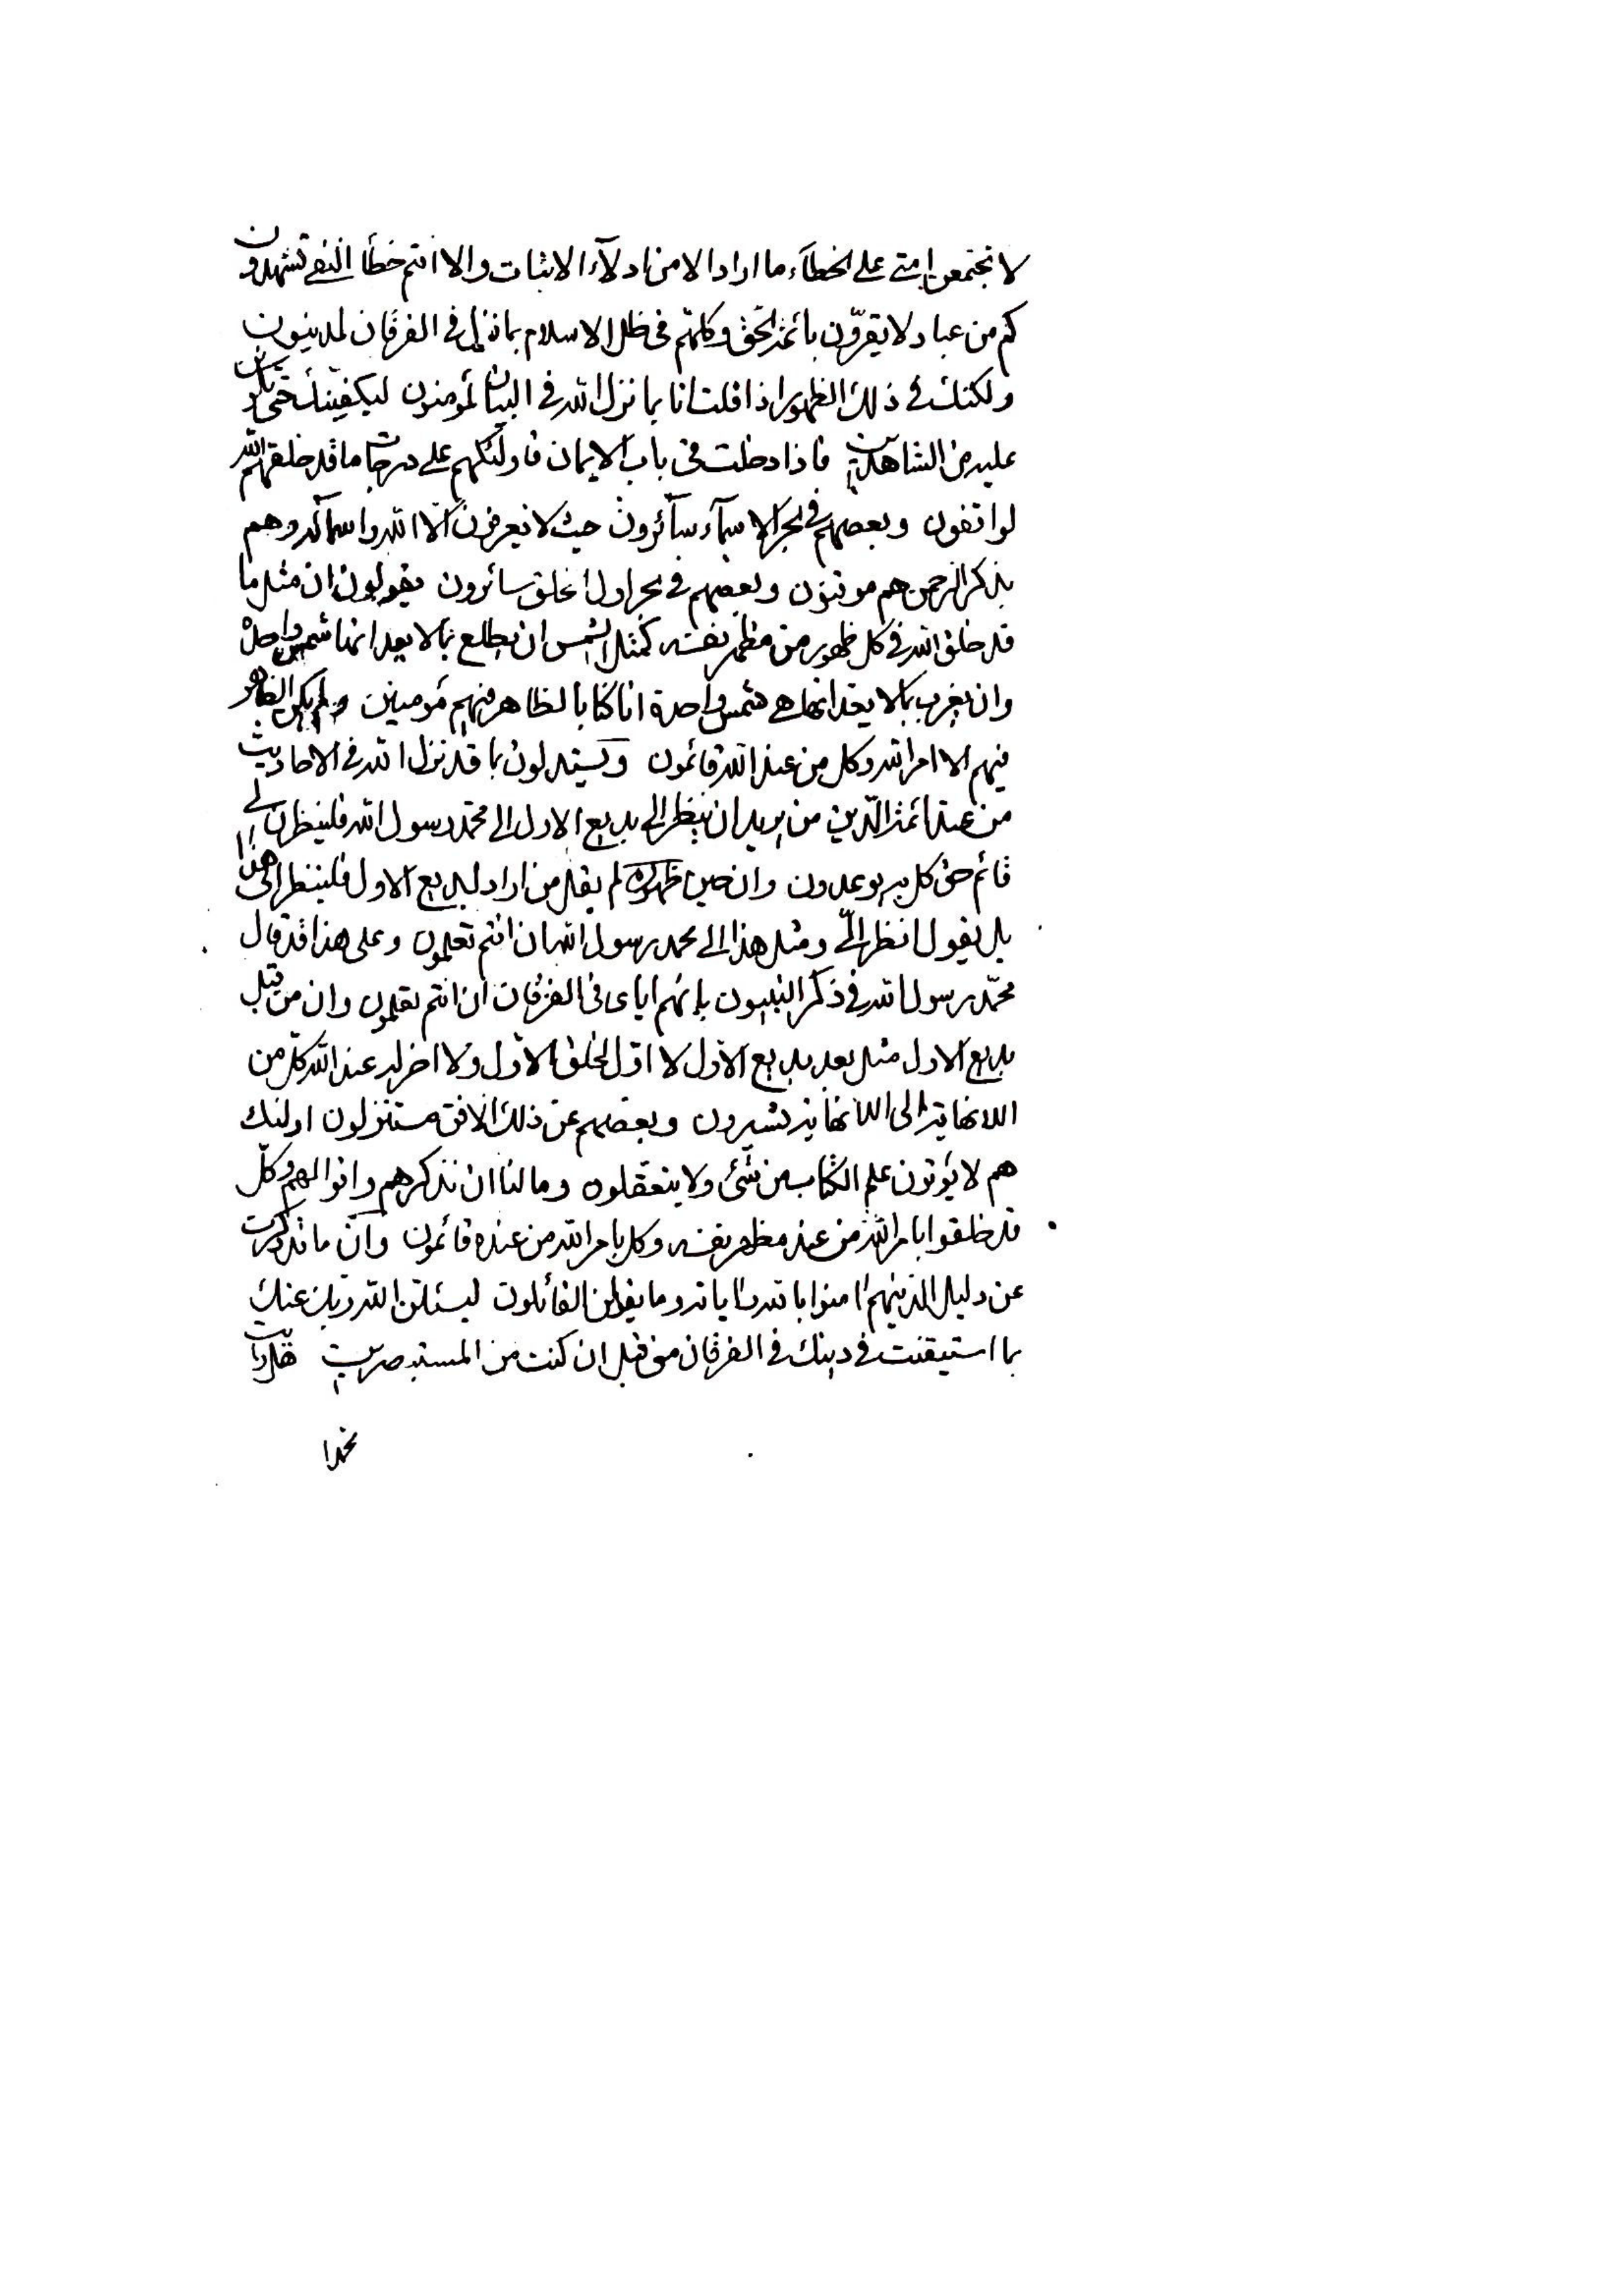 لا تجتمعن امتي على الخطآء ما اراد الا من ادلآء الاثبات والا انتم خطأ النفي تشهدون
كم من عباد لا يقرّون بائمة الحق وكلهم فى ظل الاسلام بما نزل فى الفرقان لمدينون
ولكنك فى ذلك الظهور اذا قلت انا بما نزل الله فى البيان لمؤمنون ليكفينك حتى تكونن
عليه من الشاهدين فاذا دخلت فى باب الايمان فاولئكهم على درجات ما قد خلقهم الله
لواقفون وبعضهم فى بحر الاسمآء سآئرون حيث لا يعرفون الا الله واسمائه وهم
بذكر الرحمن هم موقنون وبعضهم فى بحر اول الخلق سائرون يقولون ان مثل ما
قد خلق الله فى كل ظهور من مظهر نفسه كمثل الشمس ان يطلع بما لا يعد انها شمس واحدة
وان يغرب بما لا يعد انها هي شمس واحدة انا كنا بالظاهر فيهم مؤمنين ولم يكن الظاهر
فيهم الا امر الله وكل من عند الله قائمون ويستدلون بما قد نزل الله فى الاحاديث
من عند ائمة الدين من يريد ان ينظر الى بديع الاول الى محمد رسول الله فلينظرن الي
قائم حق كل به يوعدون وان حين ظهوره لم يقل من اراد لبديع الاول فلينظر الى هذا
بل يقول انظر الىّ ومثل هذا الى محمد رسول الله ان انتم تعلمون وعلى هذا قد قال
محمّد رسول الله فى ذكر النبيون بانهم اياى فى الفرقان ان انتم تعلمون وان من قبل
بديع الاول مثل بعد بديع الاول لا اول لخلق الاول ولا اخر له عند الله كل من
اللانهاية الى اللانهاية يسيرون وبعضهم عن ذلك الافق مستنزلون اولئك
هم لا يؤتون علم الكتاب من شئ ولا يتعقلون وما لنا ان نذكرهم واقوالهم وكل
قد خلقوا بامر الله من عند مظهر نفسه وكل بامر الله من عنده قائمون وانّ ما قد ذكرت
عن دليل الذينهم امنوا بالله واياته وما يقولن القائلون ليسئلن الله ربك عنك
بما استيقنت فى دينك فى الفرقان من قبل ان كنت من المستبصرين